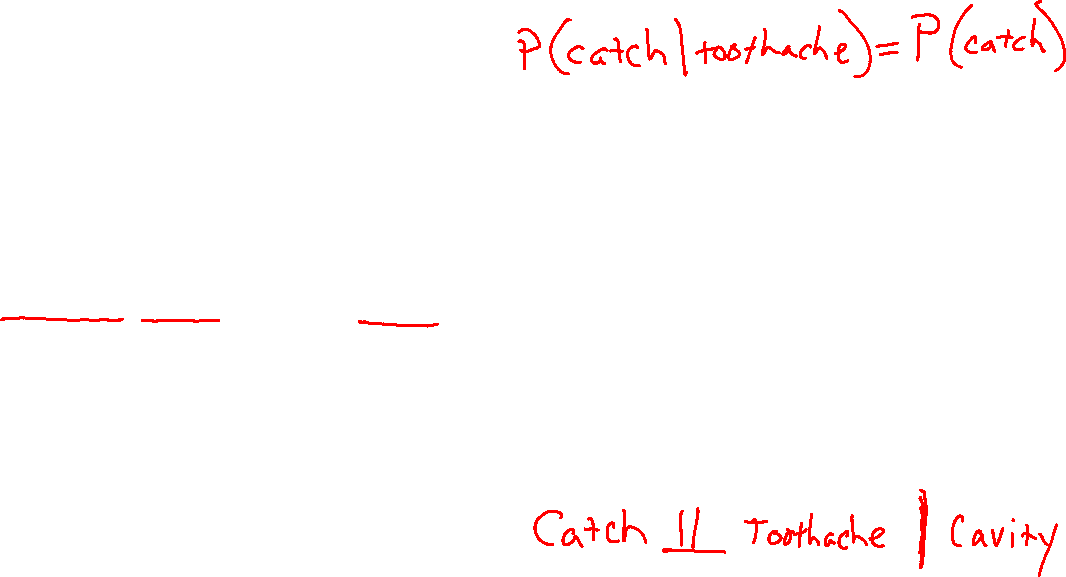 P(catch|toothache)=P(catch)
Catch ⫫ Toothache | Cavity